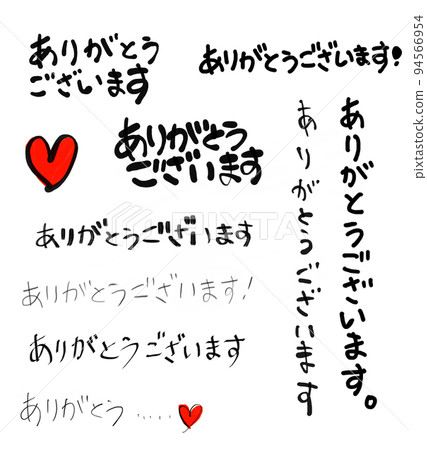 ありがとう
ございます
ありがとうございます!
ありがとう
ございます
ありがとうございます
ありがとうございます!
ありがとうございます
ありがとう.....
ありがとうございます。
ありがとうございます
PIXTA
pixtastock.com - 94566954